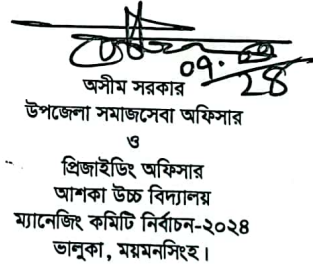 ০৭.০৫
২৪
অসীম সরকার
উপজেলা সমাজসেবা অফিসার
ও
প্রিজাইডিং অফিসার
আশকা উচ্চ বিদ্যালয়
ম্যানেজিং কমিটি নির্বাচন-২০২৪
ভালুকা, ময়মনসিংহ।